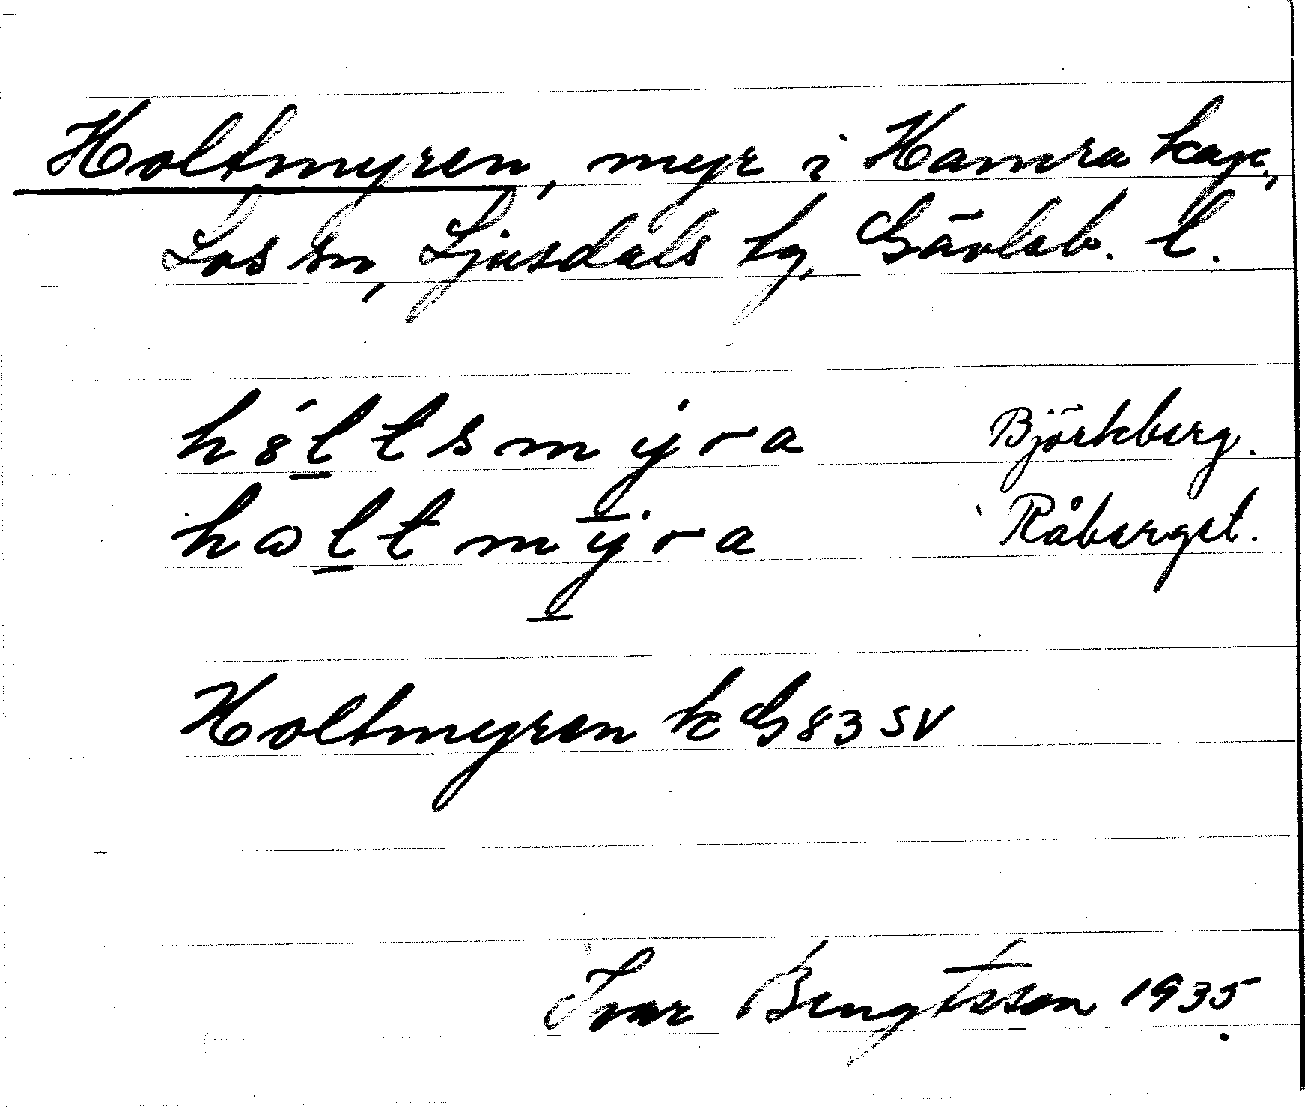 Holtmyren, myr i Hamra kap.,
Los sn, Ljusdals tg, Gävleb. l.
hȯltsmyra Björkberg.
hωltmyra Råberget.
Holtmyren k G 83 SV
Ivar Bengtsson 1935.